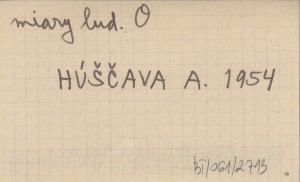 miary lud. O
HÚŠČAVA A. 1954
BT/061/2713